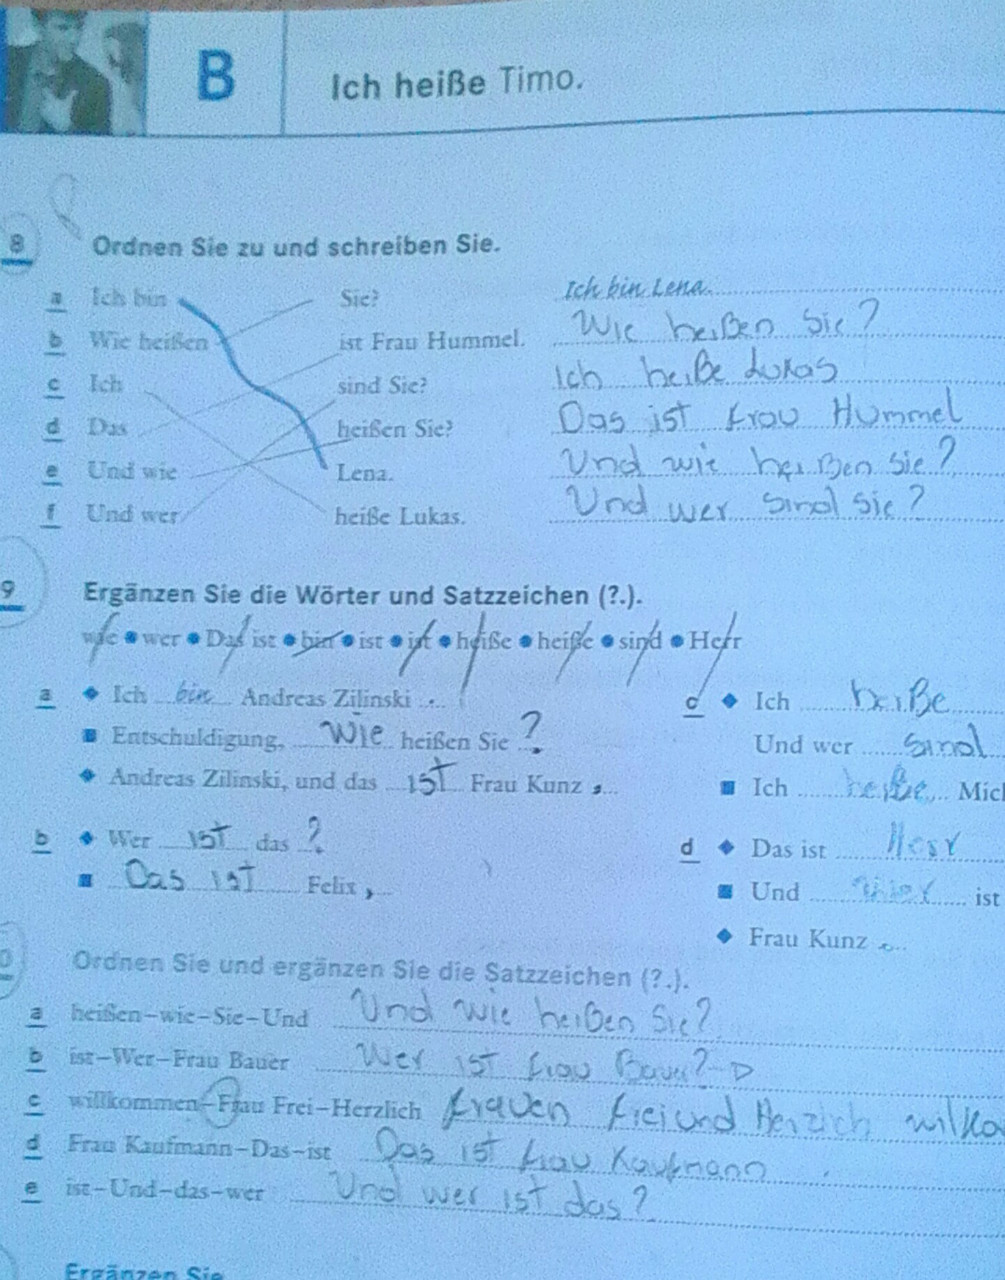 B Ich heiße Timo.
8 Ordnen Sie zu und schreiben Sie.
a Ich bin Sie? Ich bin Lena.
b Wie heißen ist Frau Hummel. Wie heißen Sie?
c Ich sind Sie? Ich heiße Lukas
d Das heißen Sie? Das ist Frau Hummel
e Und wie Lena. Und wie heißen Sie?
f Und wer heiße Lukas. Und wer sind Sie?
9 Ergänzen Sie die Wörter und Satzzeichen (?.).
wie • wer • Das ist • bin • ist • ist • heiße • heiße • sind • Herr
a ◆ Ich bin Andreas Zilinski .
■ Entschuldigung, wie heißen Sie ?
◆ Andreas Zilinski, und das ist Frau Kunz .
b ◆ Wer ist das ?
■ Das ist Felix ,
c ◆ Ich heiße
Und wer sind
■ Ich heiße Mic
d ◆ Das ist Herr
■ Und ist
◆ Frau Kunz .
0 Ordnen Sie und ergänzen Sie die Satzzeichen (?.).
a heißen–wie–Sie–Und Und wie heißen Sie?
b ist–Wer–Frau Bauer Wer ist Frau Bauer?
c willkommen–Frau Frei–Herzlich Frauen Frei und Herzlich
d Frau Kaufmann–Das–ist Das ist Frau Kaufmann .
e ist–Und–das–wer Und wer ist das?
Ergänzen Sie